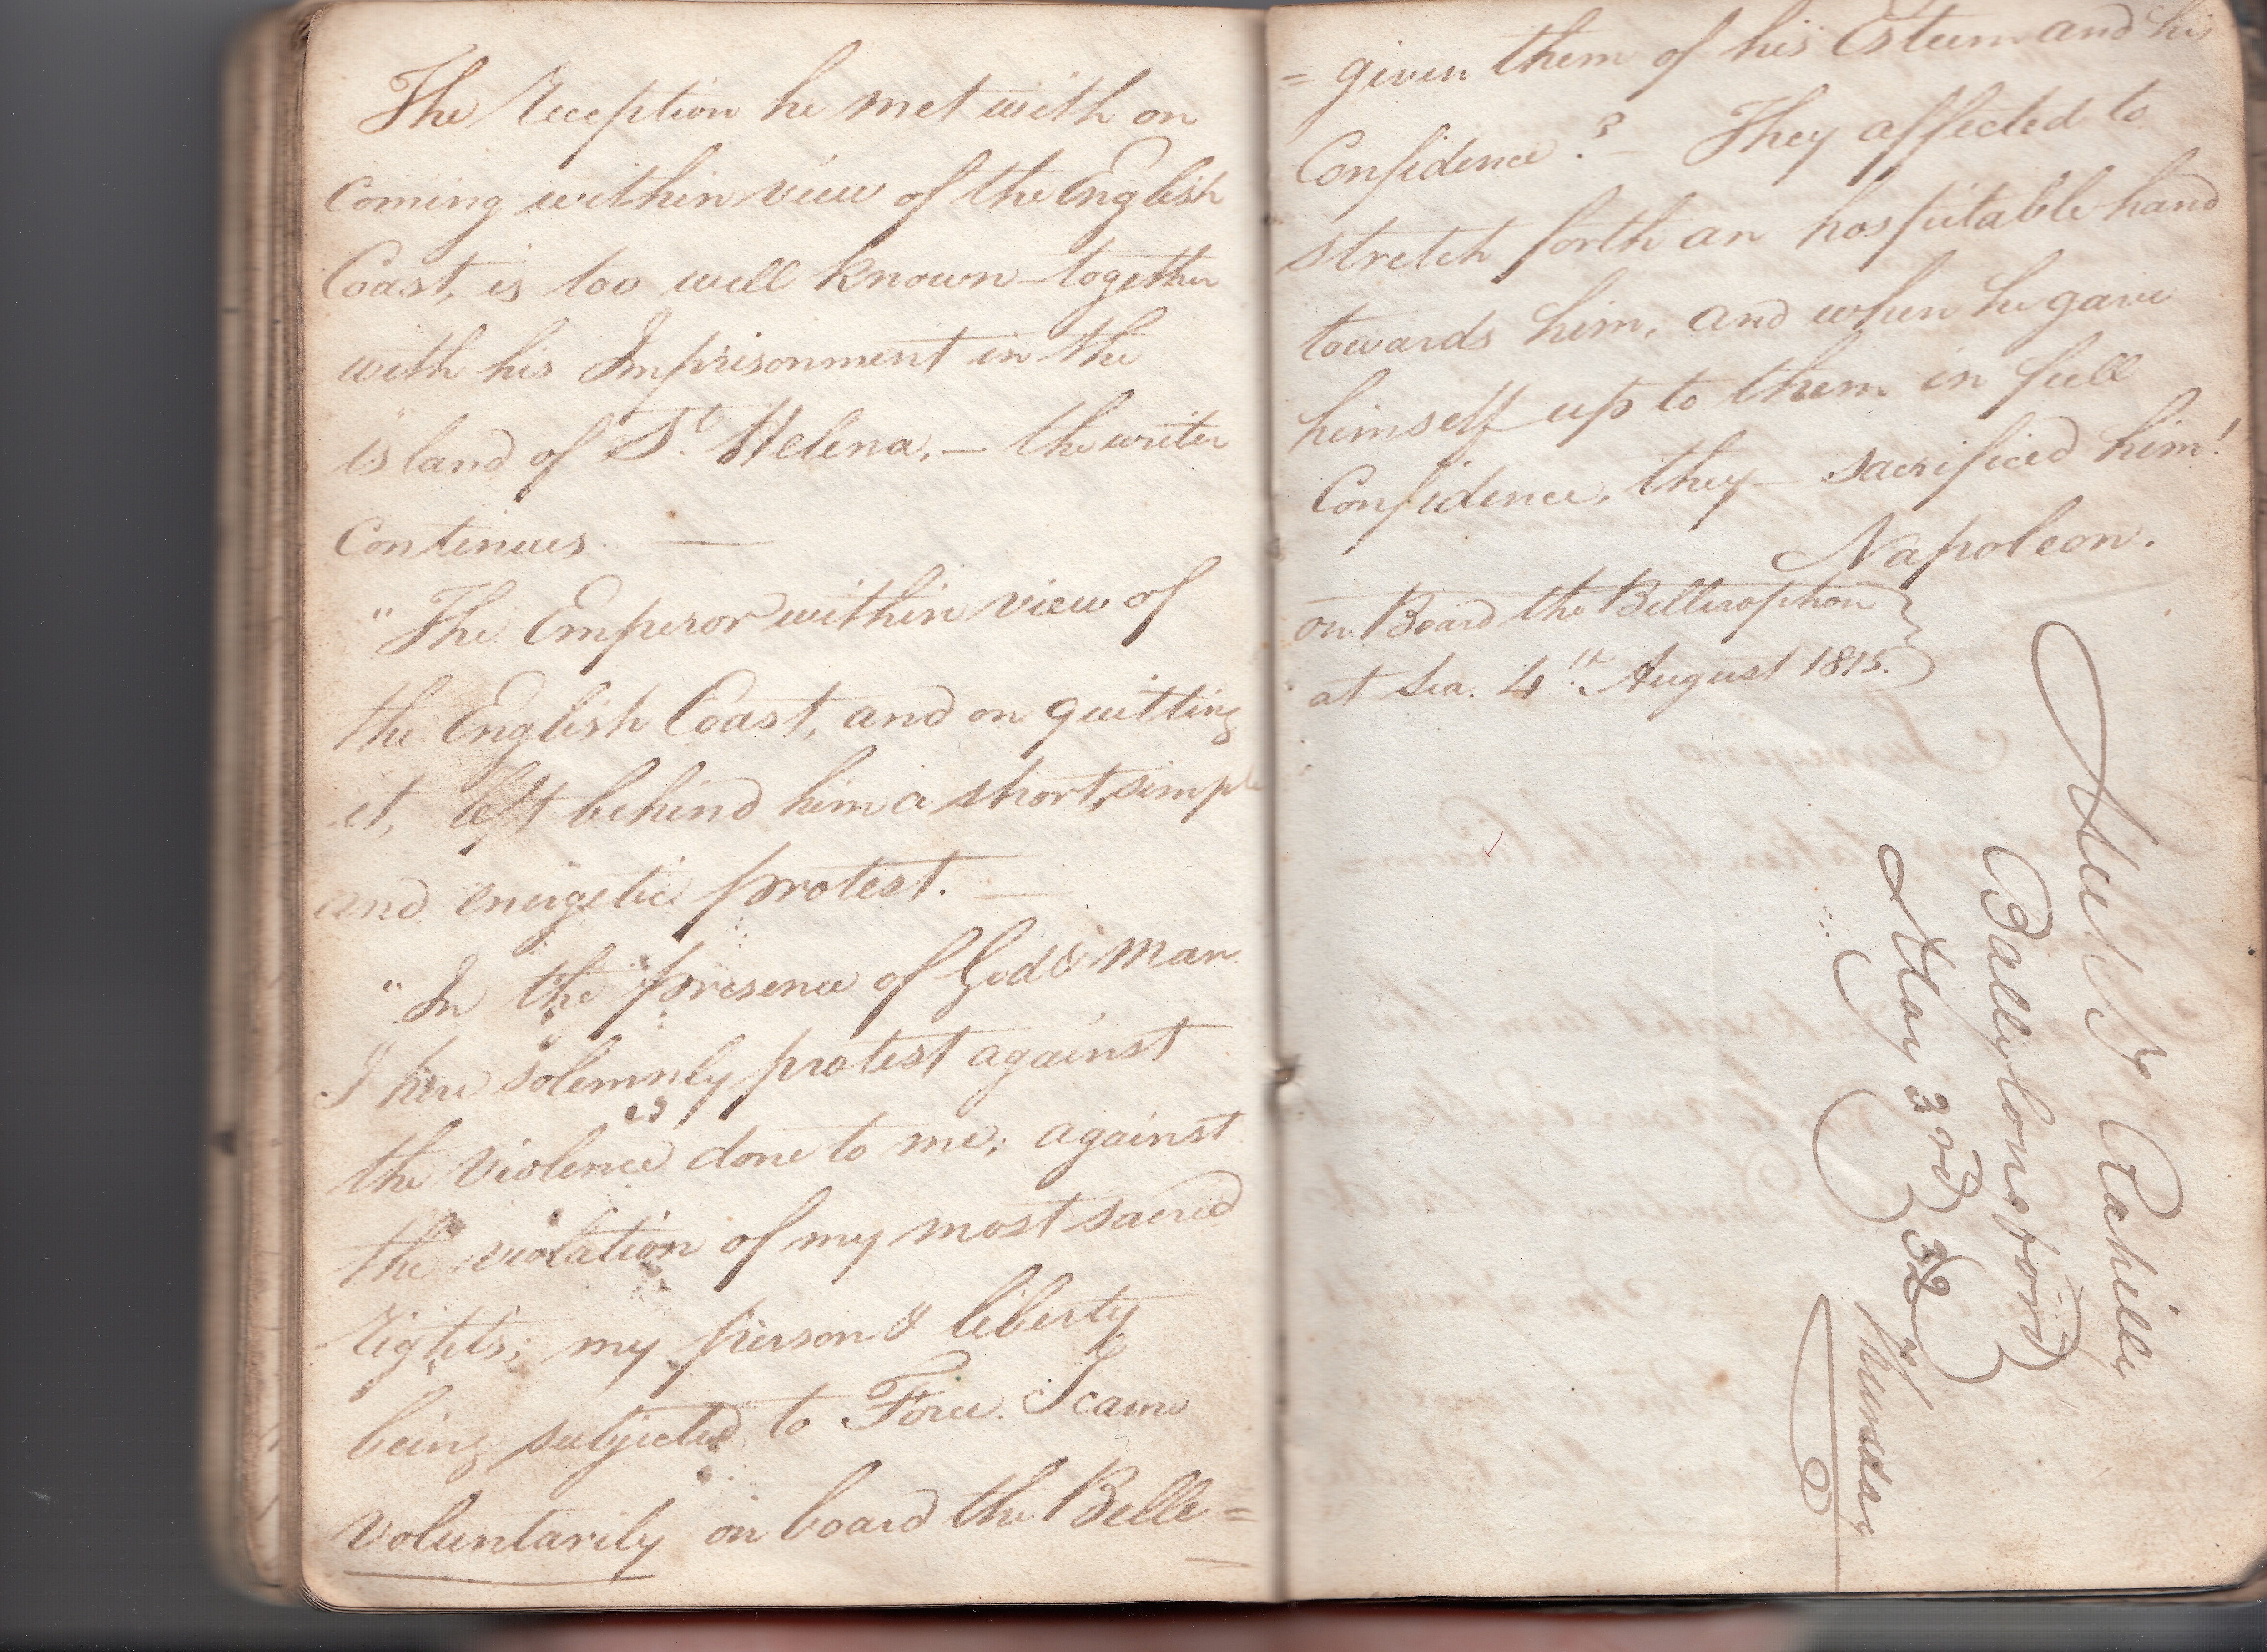 The Reception he met with on
coming within view of the English
Coast, is too well known – together
with his Imprisonment in the
island of St. Helena, – the writer
continues —
"The Emperor within view of
the English Coast, and on quitting
it, left behind him a short, simple
and energetic protest. —
"In the presence of God & man
I here solemnly protest against
the violence done to me; against
the violation of my most sacred
rights; my person & liberty
being subjected to Force. I came
voluntarily on board the Belle=
= given them of his Esteem and his
Confidence? – They affected to
stretch forth an hospitable hand
towards him, and when he gave
himself up to them in full
Confidence, they – sacrificed him!
Napoleon.
on Board the Bellerophon
at Sea. 4th. August 1815.
Ballylongford
May 3rd 32
Thursday